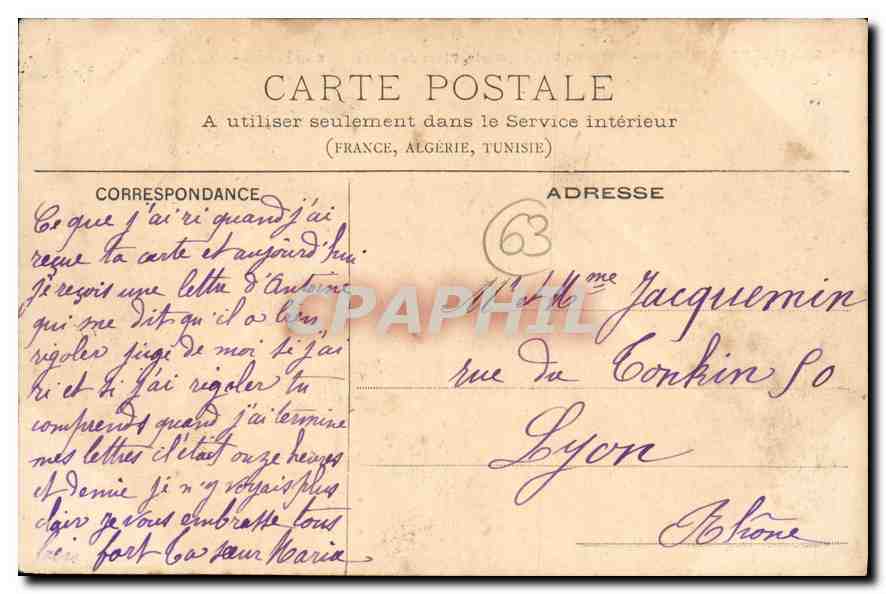 CARTE POSTALE
A utiliser seulement dans le Service intérieur
(FRANCE, ALGÉRIE, TUNISIE)
CORRESPONDANCE
Ce que j'ai ri quand j'ai
reçue ta carte et aujourd'hui
je reçois une lettre d'Antoine
qui me dit qu'il a bien
rigoler juge de moi si j'ai
ri et si j'ai rigoler tu
comprends quand j'ai terminé
mes lettres il était onze heures
et demie je n'y voyais plus
clair je vous embrasse tous
bien fort Ta sœur Maria
ADRESSE
63
Mr et Mme Jacquemin
rue du Tonkin 50
Lyon
Rhône
CPAPHIL